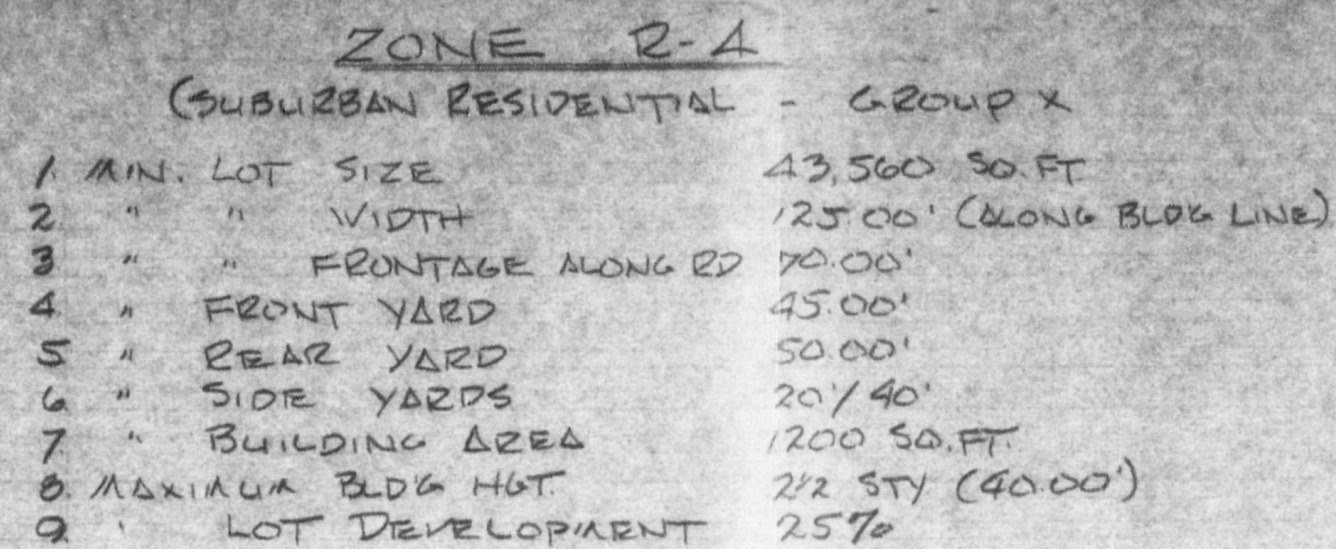 ZONE R-4
(SUBURBAN RESIDENTIAL - GROUP X
1. MIN. LOT SIZE 43,560 SQ.FT.
2. " " WIDTH 125.00' (ALONG BLDG LINE)
3 " " FRONTAGE ALONG RD 70.00'
4. " FRONT YARD 45.00'
5 " REAR YARD 50.00'
6. " SIDE YARDS 20'/40'
7. " BUILDING AREA 1200 SQ.FT.
8. MAXIMUM BLD'G HGT. 2½ STY (40.00')
9. ' LOT DEVELOPMENT 25%